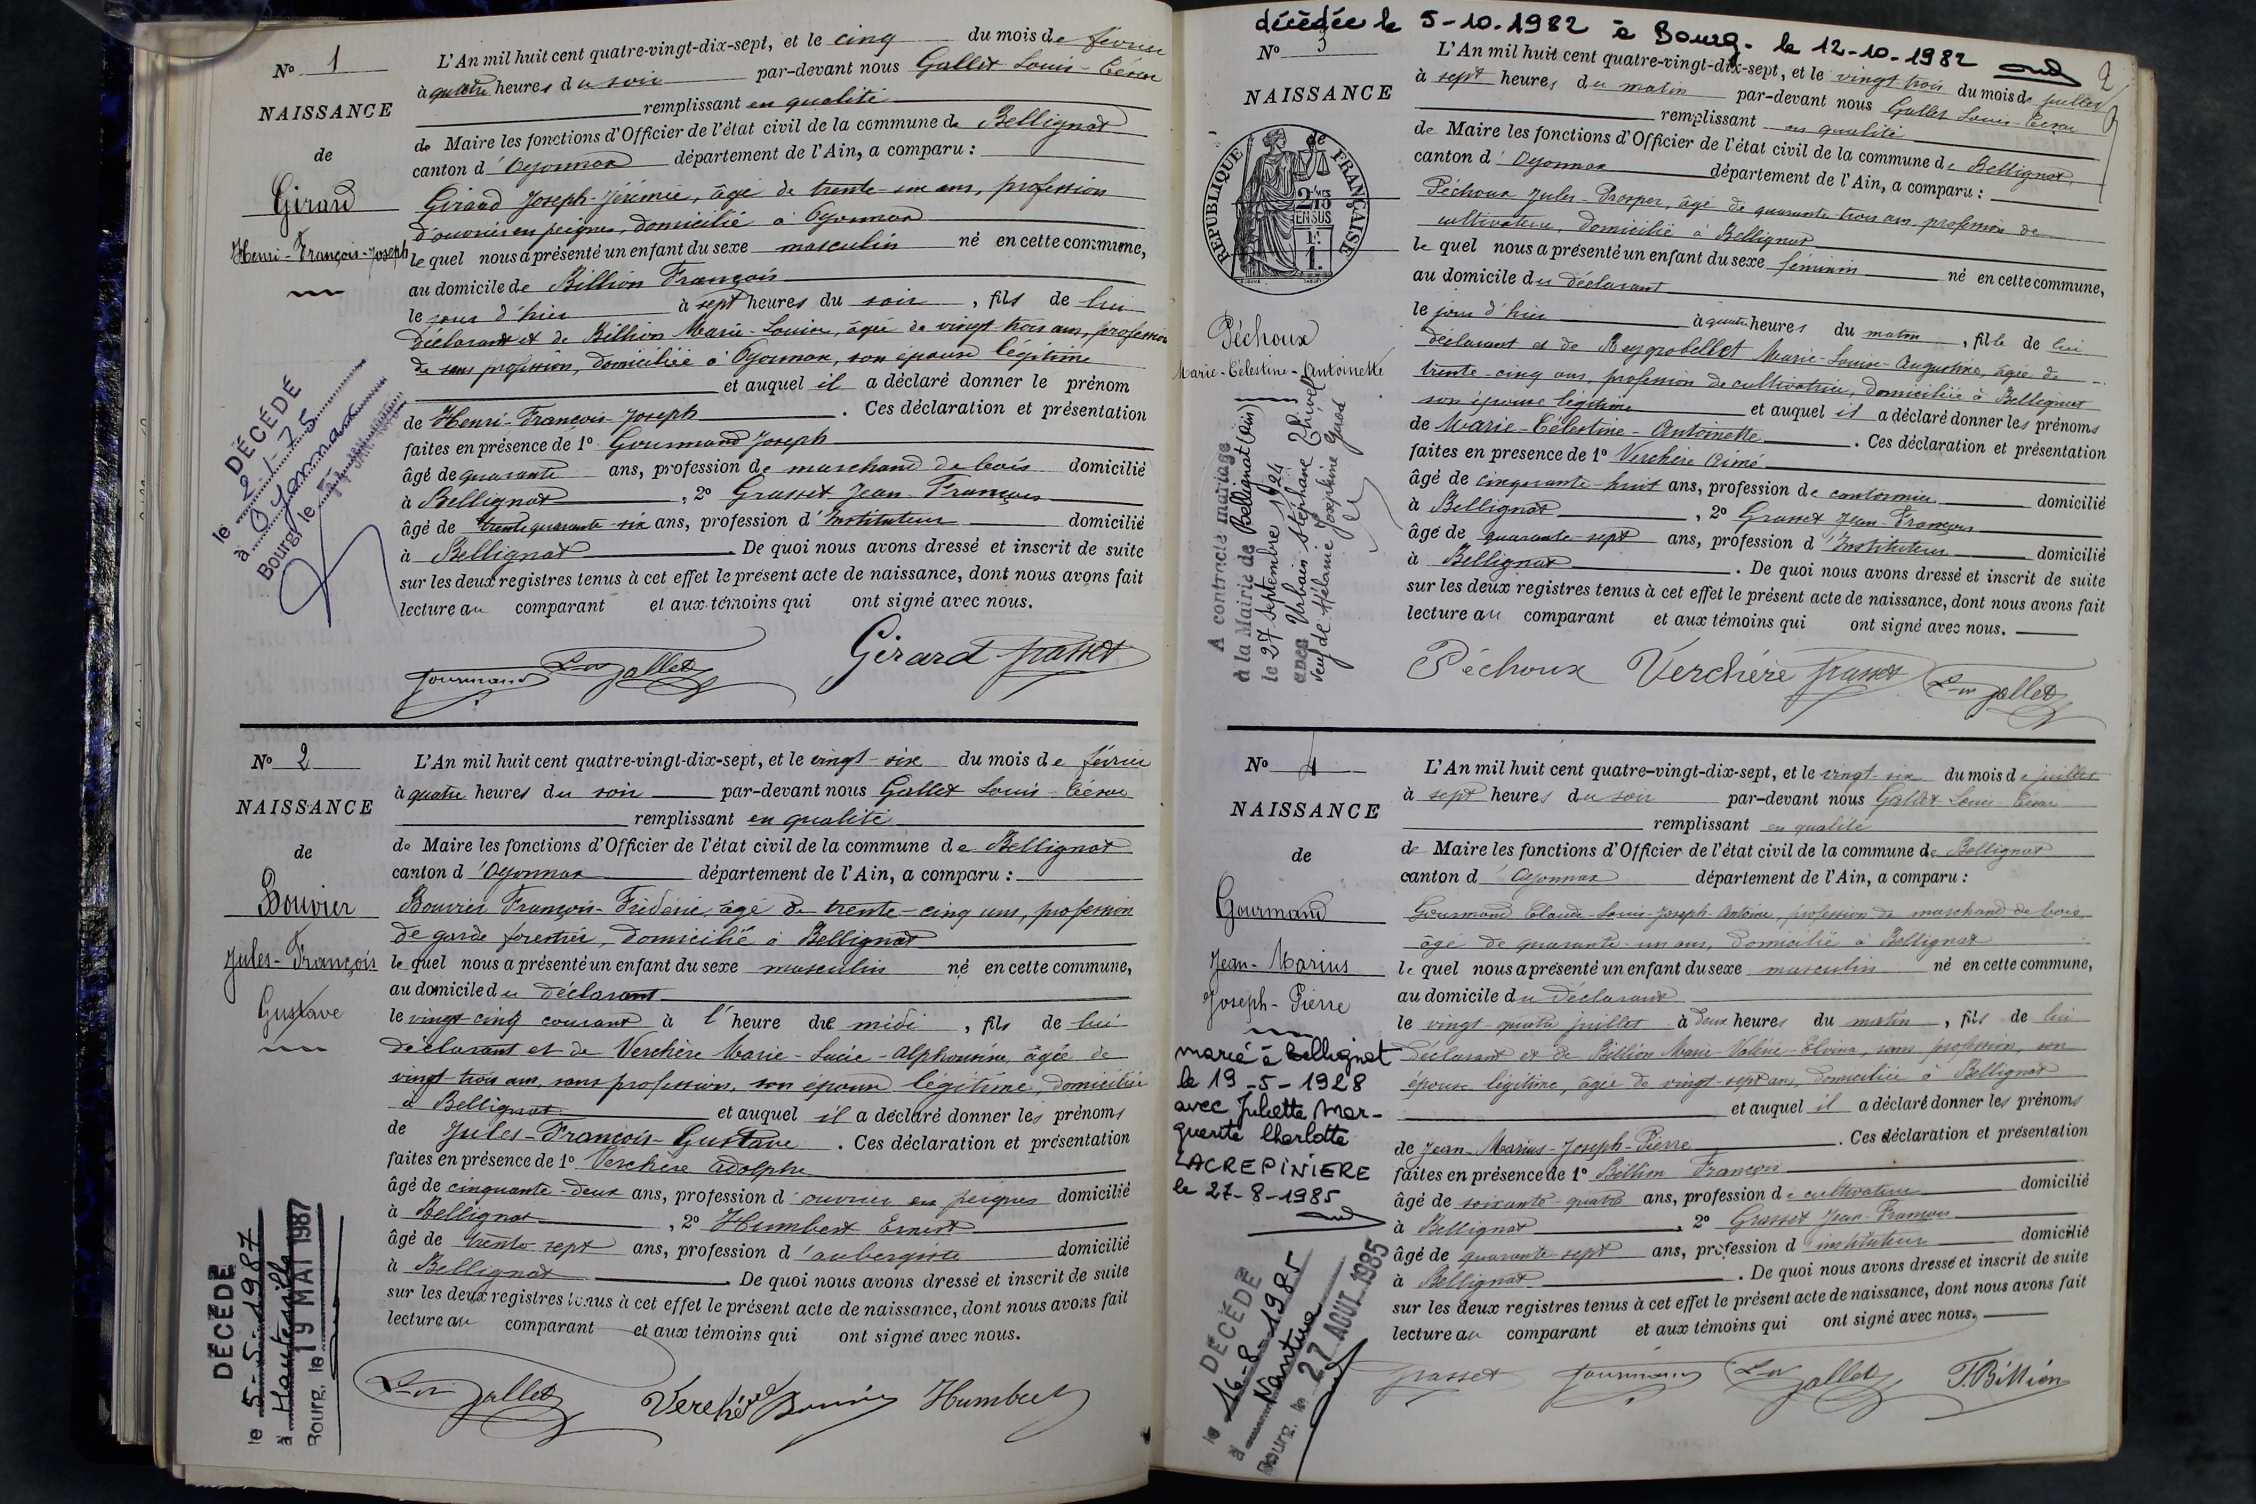 N° 1
NAISSANCE
de
Girard
Henri-François-Joseph
DÉCÉDÉ
le 2-1-75
à Oyonnax
Bourg, le
L'An mil huit cent quatre-vingt-dix-sept, et le cinq du mois de février
à quatre heures du soir par-devant nous Gallet Louis-César
remplissant en qualité
de Maire les fonctions d'Officier de l'état civil de la commune de Bellignat
canton d'Oyonnax département de l'Ain, a comparu :
Girard Joseph-Jérémie, âgé de trente-six ans, profession
d'ouvrier en peignes, domicilié à Oyonnax
le quel nous a présenté un enfant du sexe masculin né en cette commune,
au domicile de Billion François
le jour d'hier à sept heures du soir, fils de lui
déclarant et de Billion Marie-Louise, âgée de vingt-trois ans, profession
de sans profession, domiciliée à Oyonnax, son épouse légitime
et auquel il a déclaré donner le prénom
de Henri-François-Joseph. Ces déclaration et présentation
faites en présence de 1° Gourmand Joseph
âgé de quarante ans, profession de marchand de bois domicilié
à Bellignat, 2° Grasset Jean-François
âgé de trente quarante-six ans, profession d'Instituteur domicilié
à Bellignat. De quoi nous avons dressé et inscrit de suite
sur les deux registres tenus à cet effet le présent acte de naissance, dont nous avons fait
lecture au comparant et aux témoins qui ont signé avec nous.
Gourmand Ls Gallet Girard Grasset
N° 2
NAISSANCE
de
Bouvier
Jules-François
Gustave
DÉCÉDÉ
le 5-5-1987
à Hauteville
Bourg, le 19 MAI 1987
L'An mil huit cent quatre-vingt-dix-sept, et le vingt-six du mois de février
à quatre heures du soir par-devant nous Gallet Louis-César
remplissant en qualité
de Maire les fonctions d'Officier de l'état civil de la commune de Bellignat
canton d'Oyonnax département de l'Ain, a comparu :
Bouvier François-Frédéric, âgé de trente-cinq ans, profession
de garde forestier, domicilié à Bellignat
le quel nous a présenté un enfant du sexe masculin né en cette commune,
au domicile du déclarant
le vingt-cinq courant à l'heure de midi, fils de lui
déclarant et de Verchère Marie-Lucie-Alphonsine, âgée de
vingt-trois ans, sans profession, son épouse légitime, domiciliée
à Bellignat et auquel il a déclaré donner les prénoms
de Jules-François-Gustave. Ces déclaration et présentation
faites en présence de 1° Verchère Adolphe
âgé de cinquante-deux ans, profession d'ouvrier en peignes domicilié
à Bellignat, 2° Humbert Ernest
âgé de trente-sept ans, profession d'aubergiste domicilié
à Bellignat. De quoi nous avons dressé et inscrit de suite
sur les deux registres tenus à cet effet le présent acte de naissance, dont nous avons fait
lecture au comparant et aux témoins qui ont signé avec nous.
Ls Gallet Verchère Bouvier Humbert
décédée le 5-10-1982 à Bourg. le 12-10-1982
2
N° 3
NAISSANCE
de
RÉPUBLIQUE FRANÇAISE
2/10 EN SUS
Péchoux
Marie-Célestine-Antoinette
A contracté mariage
à la Mairie de Bellignat (Ain)
le 27 septembre 1924
avec Urbain Stéphane
veuf de Hélanie Joséphine
L'An mil huit cent quatre-vingt-dix-sept, et le vingt-trois du mois de juillet
à sept heures du matin par-devant nous Gallet Louis-César
remplissant en qualité
de Maire les fonctions d'Officier de l'état civil de la commune de Bellignat
canton d'Oyonnax département de l'Ain, a comparu :
Péchoux Jules-Prosper, âgé de quarante-trois ans, profession de
cultivateur, domicilié à Bellignat
le quel nous a présenté un enfant du sexe féminin né en cette commune,
au domicile du déclarant
le jour d'hier à quatre heures du matin, fille de lui
déclarant et de Reygrobellet Marie-Louise-Augustine, âgée de
trente-cinq ans, profession de cultivatrice, domiciliée à Bellignat
son épouse légitime et auquel il a déclaré donner les prénoms
de Marie-Célestine-Antoinette. Ces déclaration et présentation
faites en présence de 1° Verchère Aimé
âgé de cinquante-huit ans, profession de cantonnier domicilié
à Bellignat, 2° Grasset Jean-François
âgé de quarante-sept ans, profession d'Instituteur domicilié
à Bellignat. De quoi nous avons dressé et inscrit de suite
sur les deux registres tenus à cet effet le présent acte de naissance, dont nous avons fait
lecture au comparant et aux témoins qui ont signé avec nous.
Péchoux Verchère Grasset Ls Gallet
N° 4
NAISSANCE
de
Gourmand
Jean-Marius
Joseph-Pierre
marié à Bellignat
le 19-5-1928
avec Juliette Mar-
guerite Charlotte
LACREPINIERE
le 27-8-1985
DÉCÉDÉ
le 16-8-1985
à Nantua
Bourg, le 27 AOUT 1985
L'An mil huit cent quatre-vingt-dix-sept, et le vingt-six du mois de juillet
à sept heures du soir par-devant nous Gallet Louis-César
remplissant en qualité
de Maire les fonctions d'Officier de l'état civil de la commune de Bellignat
canton d'Oyonnax département de l'Ain, a comparu :
Gourmand Claude-Louis-Joseph-Antoine, profession de marchand de bois,
âgé de quarante-un ans, domicilié à Bellignat
le quel nous a présenté un enfant du sexe masculin né en cette commune,
au domicile du déclarant
le vingt-quatre juillet à deux heures du matin, fils de lui
déclarant et de Billion Marie-Valérie-Elvina, sans profession, son
épouse légitime, âgée de vingt-sept ans, domiciliée à Bellignat
et auquel il a déclaré donner les prénoms
de Jean-Marius-Joseph-Pierre. Ces déclaration et présentation
faites en présence de 1° Billion François
âgé de soixante-quatre ans, profession de cultivateur domicilié
à Bellignat, 2° Grasset Jean-François
âgé de quarante-sept ans, profession d'instituteur domicilié
à Bellignat. De quoi nous avons dressé et inscrit de suite
sur les deux registres tenus à cet effet le présent acte de naissance, dont nous avons fait
lecture au comparant et aux témoins qui ont signé avec nous.
Grasset Gourmand Ls Gallet F. Billion